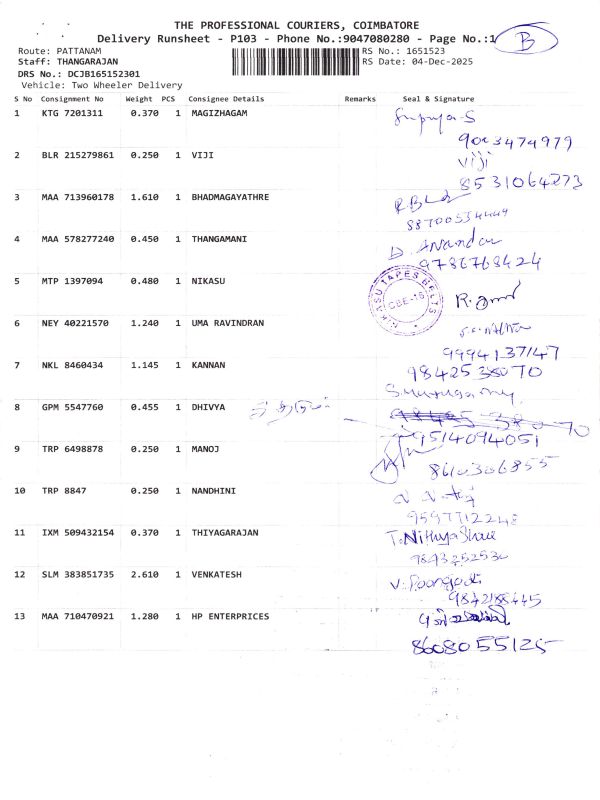 THE PROFESSIONAL COURIERS, COIMBATORE
Delivery Runsheet - P103 - Phone No.:9047080280 - Page No.:1 B
Route: PATTANAM RS No.: 1651523
Staff: THANGARAJAN RS Date: 04-Dec-2025
DRS No.: DCJB165152301
Vehicle: Two Wheeler Delivery
S No Consignment No Weight PCS Consignee Details Remarks Seal & Signature
1 KTG 7201311 0.370 1 MAGIZHAGAM
9003474979
2 BLR 215279861 0.250 1 VIJI Viji
8531064273
3 MAA 713960178 1.610 1 BHADMAGAYATHRE
4 MAA 578277240 0.450 1 THANGAMANI D. Anandan
9786768424
5 MTP 1397094 0.480 1 NIKASU NIKASU TAPES BELTS CBE-16
6 NEY 40221570 1.240 1 UMA RAVINDRAN
9994137147
7 NKL 8460434 1.145 1 KANNAN 98425 38070
8 GPM 5547760 0.455 1 DHIVYA
9514094051
9 TRP 6498878 0.250 1 MANOJ
8610306855
10 TRP 8847 0.250 1 NANDHINI
9597712248
11 IXM 509432154 0.370 1 THIYAGARAJAN
12 SLM 383851735 2.610 1 VENKATESH V. Poongodi
9842188445
13 MAA 710470921 1.280 1 HP ENTERPRICES
8608055125